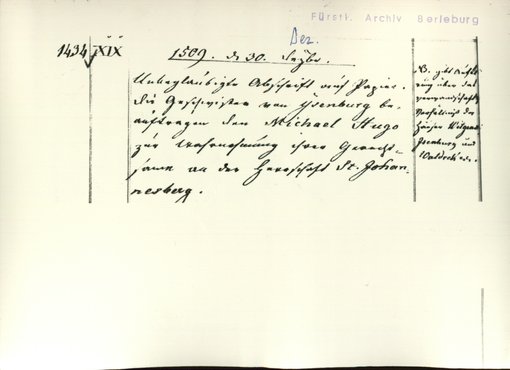 Fürstl. Archiv Berleburg
Dez.
1434 XIX
1509. d. 30. Dezbr.
Unbeglaubigte Abschrift auf Papier.
Die Geschwister von Isenburg be-
auftragen den Michael Hugo
zur Wahrnehmung ihrer Gerecht-
same an der Herrschaft St. Johan-
nesberg.
N. gibt Aufklä-
rung über das
verwandschaftl.
Verhältniß der
Häuser Witgenst.
Isenburg und
Waldeck